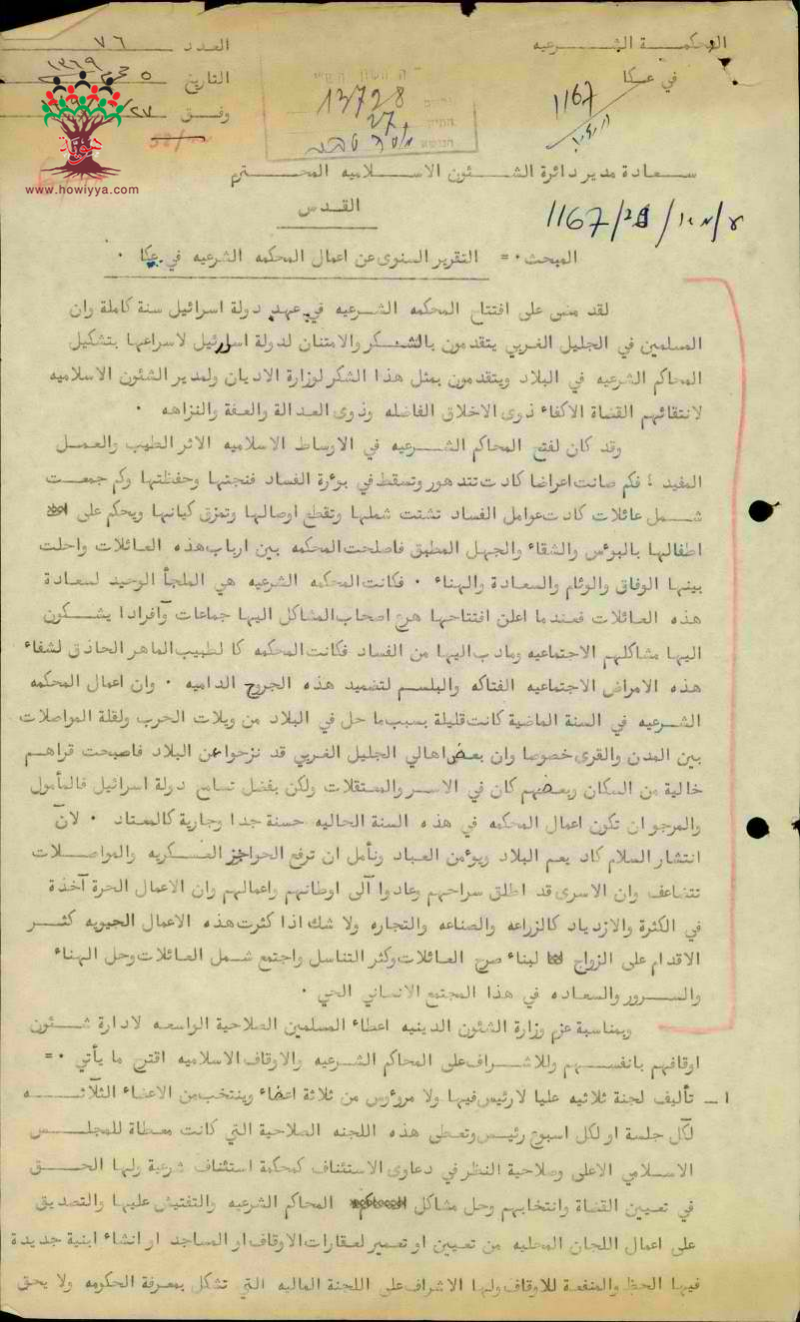 المحكمة الشرعيه
العدد ٧٦
في عكا
التاريخ ٥ محرم ١٣٦٩
وفق ٢٧/
1167
13728
27
www.howiyya.com
سعادة مدير دائرة الشئون الاسلاميه المحترم
القدس
1167/
المبحث ٠= التقرير السنوى عن اعمال المحكمه الشرعيه في عكا ٠
لقد مضى على افتتاح المحكمه الشرعيه في عهد دولة اسرائيل سنة كاملة وان
المسلمين في الجليل الغربي يتقدمون بالشكر والامتنان لدولة اسرائيل لاسراعها بتشكيل
المحاكم الشرعيه في البلاد ويتقدمون بمثل هذا الشكر لوزارة الاديان ولمدير الشئون الاسلاميه
لانتقائهم القضاة الاكفاء ذوى الاخلاق الفاضله وذوى العدالة والعفة والنزاهه ٠
وقد كان لفتح المحاكم الشرعيه في الاوساط الاسلاميه الاثر الطيب والعمل
المفيد ، فكم صانت اعراضا كادت تتدهور وتسقط في بوءرة الفساد فنجتها وحفظتها وكم جمعت
شمل عائلات كادت عوامل الفساد تشتت شملها وتقطع اوصالها وتمزق كيانها ويحكم على
اطفالها بالبوءس والشقاء والجهل المطبق فاصلحت المحكمه بين ارباب هذه العائلات واحلت
بينها الوفاق والوئام والسعادة والهناء ٠ فكانت المحكمه الشرعيه هي الملجأ الوحيد لسعادة
هذه العائلات فعندما اعلن افتتاحها هرع اصحاب المشاكل اليها جماعات وآفرادا يشكون
اليها مشاكلهم الاجتماعيه ومادب اليها من الفساد فكانت المحكمه كالطبيب الماهر الحاذق لشفاء
هذه الامراض الاجتماعيه الفتاكه والبلسم لتضميد هذه الجروح الداميه ٠ وان اعمال المحكمه
الشرعيه في السنة الماضية كانت قليلة بسبب ما حل في البلاد من ويلات الحرب ولقلة المواصلات
بين المدن والقرى خصوصا وان بعض اهالي الجليل الغربي قد نزحوا عن البلاد فاصبحت قراهم
خالية من السكان وبعضهم كان في الاسر والمعتقلات ولكن بفضل تسامح دولة اسرائيل فالمأمول
والمرجو ان تكون اعمال المحكمه في هذه السنة الحاليه حسنة جدا وجارية كالمعتاد ٠ لان
انتشار السلام كاد يعم البلاد ويوءمن العباد ونأمل ان ترفع الحواجز العسكريه والمواصلات
تتضاعف وان الاسرى قد اطلق سراحهم وعادوا آلى اوطانهم واعمالهم وان الاعمال الحرة آخذة
في الكثرة والازدياد كالزراعه والصناعه والتجاره ولا شك اذا كثرت هذه الاعمال الحيويه كثر
الاقدام على الزواج لبناء صرح العائلات وكثر التناسل واجتمع شمل العائلات وحل الهناء
والسرور والسعاده في هذا المجتمع الانساني الحي ٠
وبمناسبة عزم وزارة الشئون الدينيه اعطاء المسلمين الصلاحية الواسعه لادارة شئون
اوقافهم بانفسهم وللاشراف على المحاكم الشرعيه والاوقاف الاسلاميه اقترح ما يأتي ٠=
١ـ تأليف لجنة ثلاثيه عليا لا رئيس فيها ولا مروءوس من ثلاثة اعضاء وينتخب من الاعضاء الثلآثه
لكل جلسة او لكل اسبوع رئيس وتعطى هذه اللجنه الصلاحية التي كانت معطاة للمجلس
الاسلامي الاعلى وصلاحية النظر في دعاوى الاستئناف كمحكمة استئناف شرعية ولها الحق
في تعيين القضاة وانتخابهم وحل مشاكل المحاكم الشرعيه والتفتيش عليها والتصديق
على اعمال اللجان المحليه من تعيين او تعمير لعقارات الاوقاف او المساجد او انشاء ابنية جديدة
فيها الحظ والمنفعة للاوقاف ولها الاشراف على اللجنة الماليه التي تشكل بمعرفة الحكومه ولا يحق